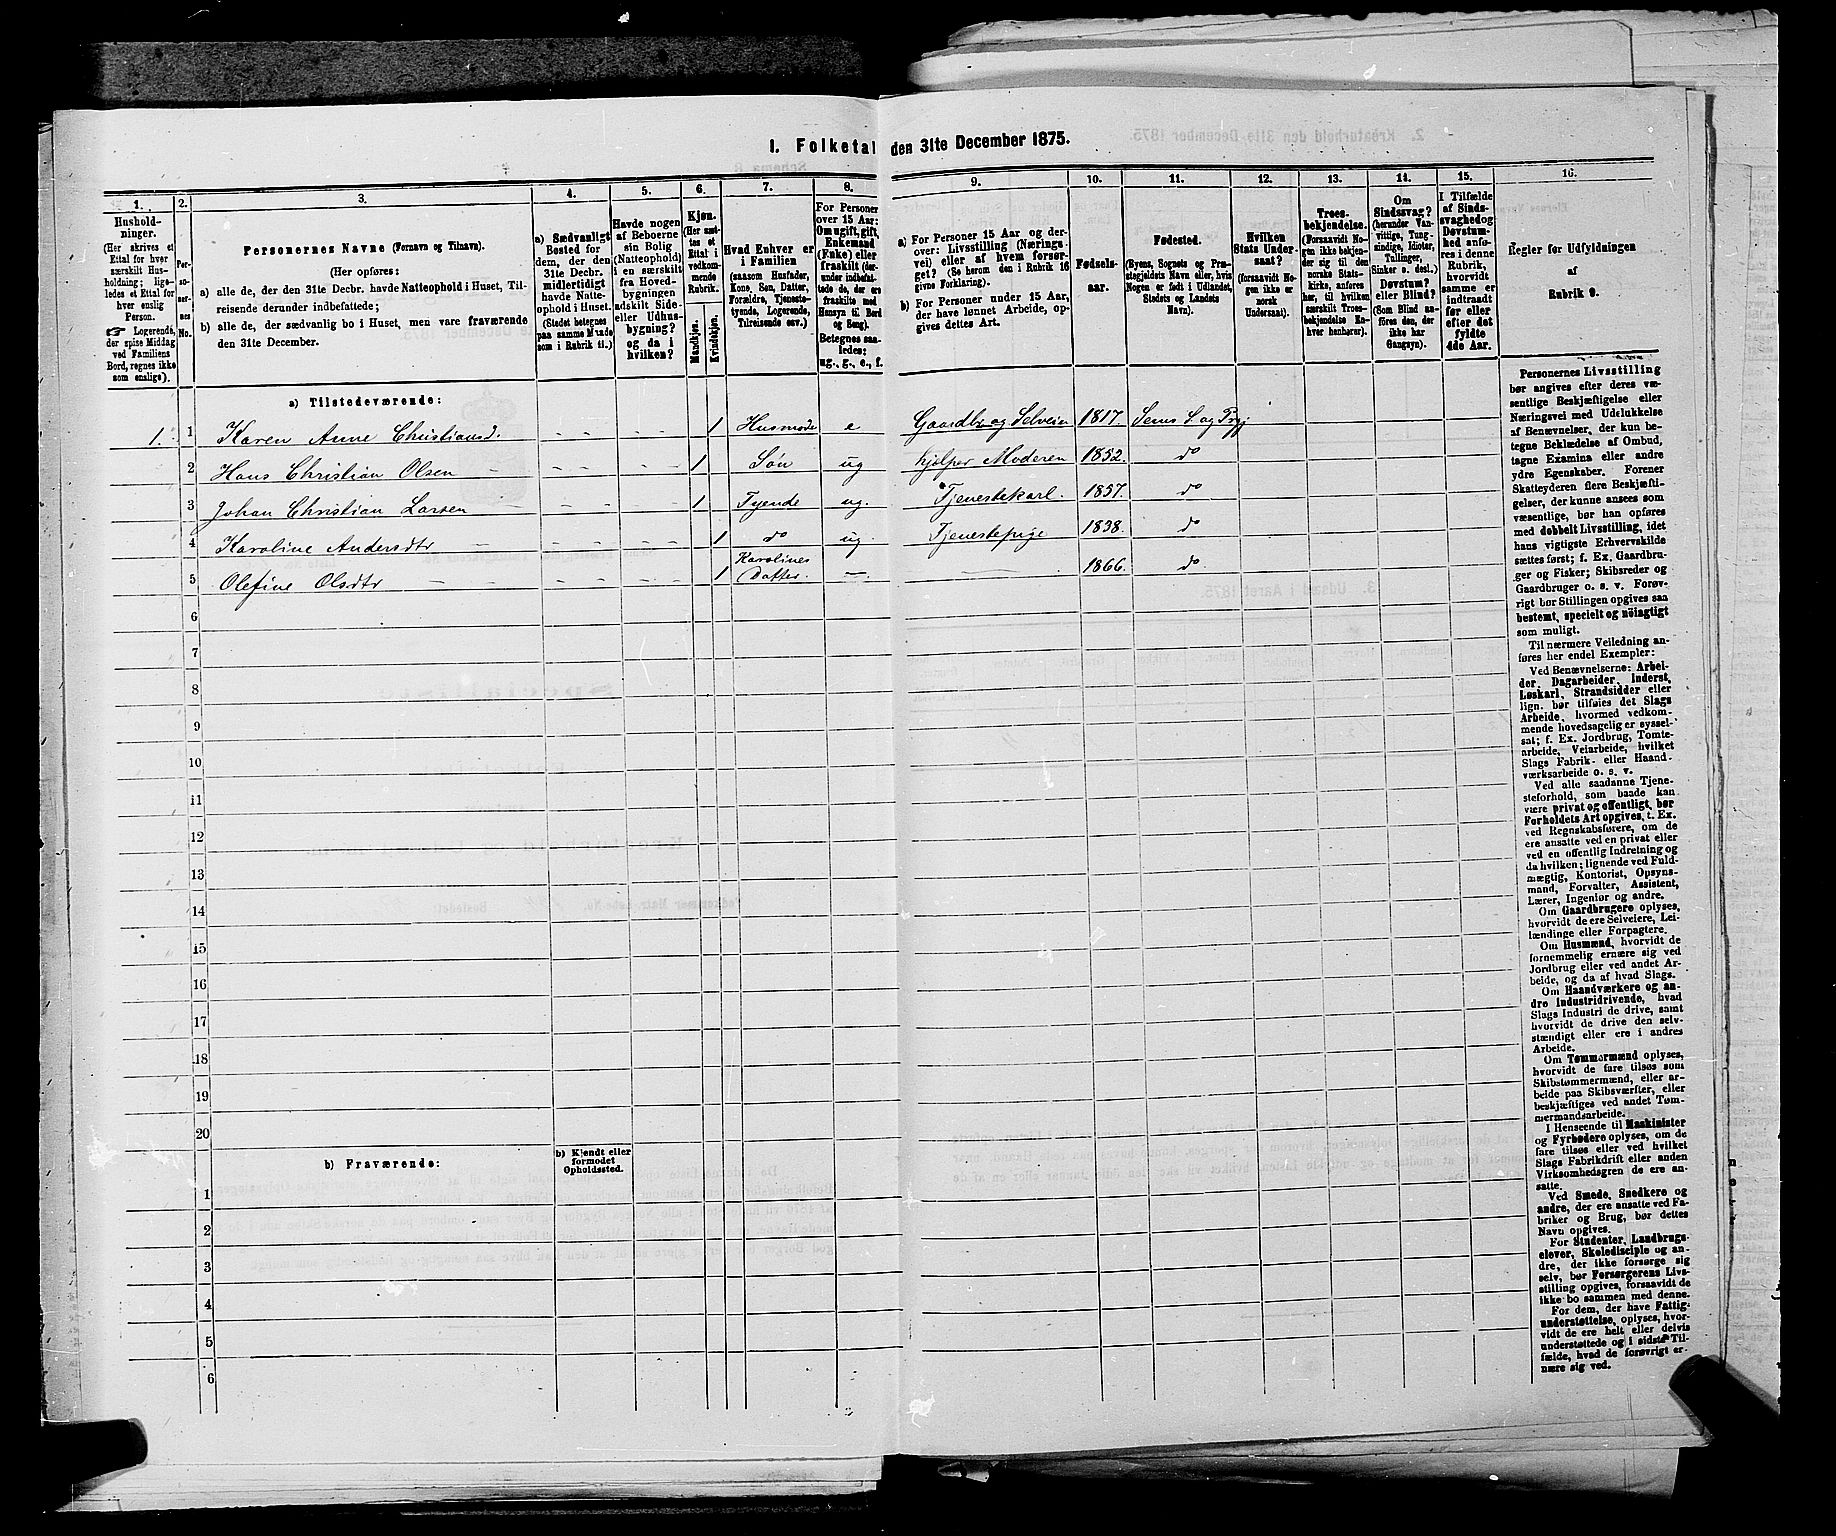 I. Folketal den 31te December 1875.
1.
Hushold-
ninger.
(Her skrives et
Ettal for hver
særskilt Hus-
holdning; lige-
ledes et Ettal for
hver enslig
Person.
☞ Logerende,
der spise Middag
ved Familiens
Bord, regnes ikke
som enslige).
2.
Per-
soner-
nes
No.
3.
Personernes Navne (Fornavn og Tilnavn).
(Her opføres:
a) alle de, der den 31te Decbr. havde Natteophold i Huset, Til-
reisende derunder indbefattede;
b) alle de, der sædvanlig bo i Huset, men vare fraværende
den 31te December.
4.
a) Sædvanligt
Bosted for
dem, der den
31te Decbr.
midlertidigt
havde Natte-
ophold i Huset.
(Stedet betegnes
paa samme Maade
som i Rubrik 11.)
5.
Havde nogen
af Beboerne
sin Bolig
(Natteophold)
i en særskilt
fra Hoved-
bygningen
adskilt Side-
eller Udhus-
bygning?
og da i
hvilken?
6.
Kjøn.
(Her sæt-
tes et
Ettal i
vedkom-
mende
Rubrik.
Mandkjøn.
Kvindekjøn.
7.
Hvad Enhver er
i Familien
(saasom Husfader,
Kone, Søn, Datter,
Forældre, Tjeneste-
tyende, Logerende,
Tilreisende osv.)
8.
For Personer
over 15 Aar:
Om ugift, gift,
Enkemand
(Enke) eller
fraskilt (der-
under indbefat-
tede de, der ere
fraskilte med
Hensyn til Bord
og Seng).
Betegnes saa-
ledes:
ug., g., e., f.
9.
a) For Personer 15 Aar og der-
over: Livsstilling (Nærings-
vei) eller af hvem forsør-
get? (Se herom den i Rubrik 16
givne Forklaring).
b) For Personer under 15 Aar,
der have lønnet Arbeide, op-
gives dettes Art.
10.
Fødsels-
aar.
11.
Fødested.
(Byens, Sognets og Præ-
stegjeldets Navn eller, hvis
Nogen er født i Udlandet,
Stedets og Landets
Navn).
12.
Hvilken
Stats Under-
saat?
(forsaavidt No-
gen ikke er
norsk
Undersaat).
13.
Troes-
bekjendelse.
(Forsaavidt No-
gen ikke bekjen-
der sig til den
norske Stats-
kirke, anføres
her, til hvilken
særskilt Troes-
bekjendelse En-
hver henhører).
14.
Om
Sindssvag?
(herunder Van-
vittige, Tung-
sindige, Idioter,
Tullinger,
Sinker o. desl.)
Døvstum?
eller Blind?
(Som Blind an-
føres den, der
ikke har
Gangsyn).
15.
I Tilfælde
af Sinds-
svaghed og
Døvstum-
hed anfø-
res i denne
Rubrik,
hvorvidt
samme er
indtraadt
før eller
efter det
fyldte
4de Aar.
16.
Regler for Udfyldningen
af
Rubrik 9.
a) Tilstedeværende:
1. 1 Karen Anne Christiansd. 1 Husmoder e Gaardbr. og Selveier 1817. Sems S. og Prgj
2 Hans Christian Olsen 1 Søn ug hjælper Moderen 1852. do
3 Johan Christian Larsen 1 Tyende ug. Tjenestekarl. 1857. do
4 Karoline Andersdtr 1 do ug. Tjenestepige 1838. do
5 Olefine Olsdtr 1 Karolines
Datter. — — 1866. do
6
7
8
9
10
11
12
13
14
15
16
17
18
19
20
b) Fraværende:
b) Kjendt eller
formodet
Opholdssted.
1
2
3
4
5
6
Personernes Livsstilling
bør angives efter deres væ-
sentlige Beskjæftigelse eller
Næringsvei med Udelukkelse
af Benævnelser, der kun be-
tegne Beklædelse af Ombud,
tagne Examina eller andre
ydre Egenskaber. Forener
Skatteyderen flere Beskjæfti-
gelser, der kunne ansees som
væsentlige, bør han opføres
med dobbelt Livsstilling, idet
hans vigtigste Erhvervskilde
sættes først; f. Ex. Gaardbru-
ger og Fisker; Skibsreder og
Gaardbruger o. s. v. Forøv-
rigt bør Stillingen opgives saa
bestemt, specielt og nöiagtigt
som muligt.
Til nærmere Veiledning an-
føres her endel Exempler:
Ved Benævnelserne: Arbei-
der, Dagarbeider, Inderst,
Løskarl, Strandsidder eller
lign. bør tilføies det Slags
Arbeide, hvormed vedkom-
mende hovedsagelig er syssel-
sat; f. Ex. Jordbrug, Tomte-
arbeide, Veiarbeide, hvilket
Slags Fabrik- eller Haand-
værksarbeide o. s. v.
Ved alle saadanne Tjene-
steforhold, som baade kan
være privat og offentligt, bør
Forholdets Art opgives, t. Ex.
ved Regnskabsførere, om de
ere ansatte ved en privat eller
ved en offentlig Indretning og
da hvilken; lignende ved Fuld-
mægtig, Kontorist, Opsyns-
mand, Forvalter, Assistent,
Lærer, Ingeniør og andre.
Om Gaardbrugere oplyses,
hvorvidt de ere Selveiere, Lei-
lændinge eller Forpagtere.
Om Husmænd, hvorvidt de
fornemmelig ernære sig ved
Jordbrug eller ved andet Ar-
beide, og da af hvad Slags.
Om Haandværkere og an-
dre Industridrivende, hvad
Slags Industri de drive, samt
hvorvidt de drive den selv-
stændigt eller ere i andres
Arbeide.
Om Tømmermænd oplyses,
hvorvidt de fare tilsøs som
Skibstømmermænd, eller ar-
beide paa Skibsværfter, eller
beskjæftiges ved andet Tøm-
mermandsarbeide.
I Henseende til Maskinister
og Fyrbødere oplyses, om de
fare tilsøs eller ved hvilket
Slags Fabrikdrift eller anden
Virksomhedsgren de ere an-
satte.
Ved Smede, Snedkere og
andre, der ere ansatte ved Fa-
briker og Brug, bør dettes
Navn opgives.
For Studenter, Landbrugs-
elever, Skoledisciple og an-
dre, der ikke forsørge sig
selv, bør Forsørgerens Livs-
stilling opgives, forsaavidt de
ikke bo sammen med denne.
For dem, der have Fattig-
understøttelse, oplyses, hvor-
vidt de ere helt eller delvis
understøttede og i sidste Til-
fælde, hvad de forøvrigt er-
nære sig ved.